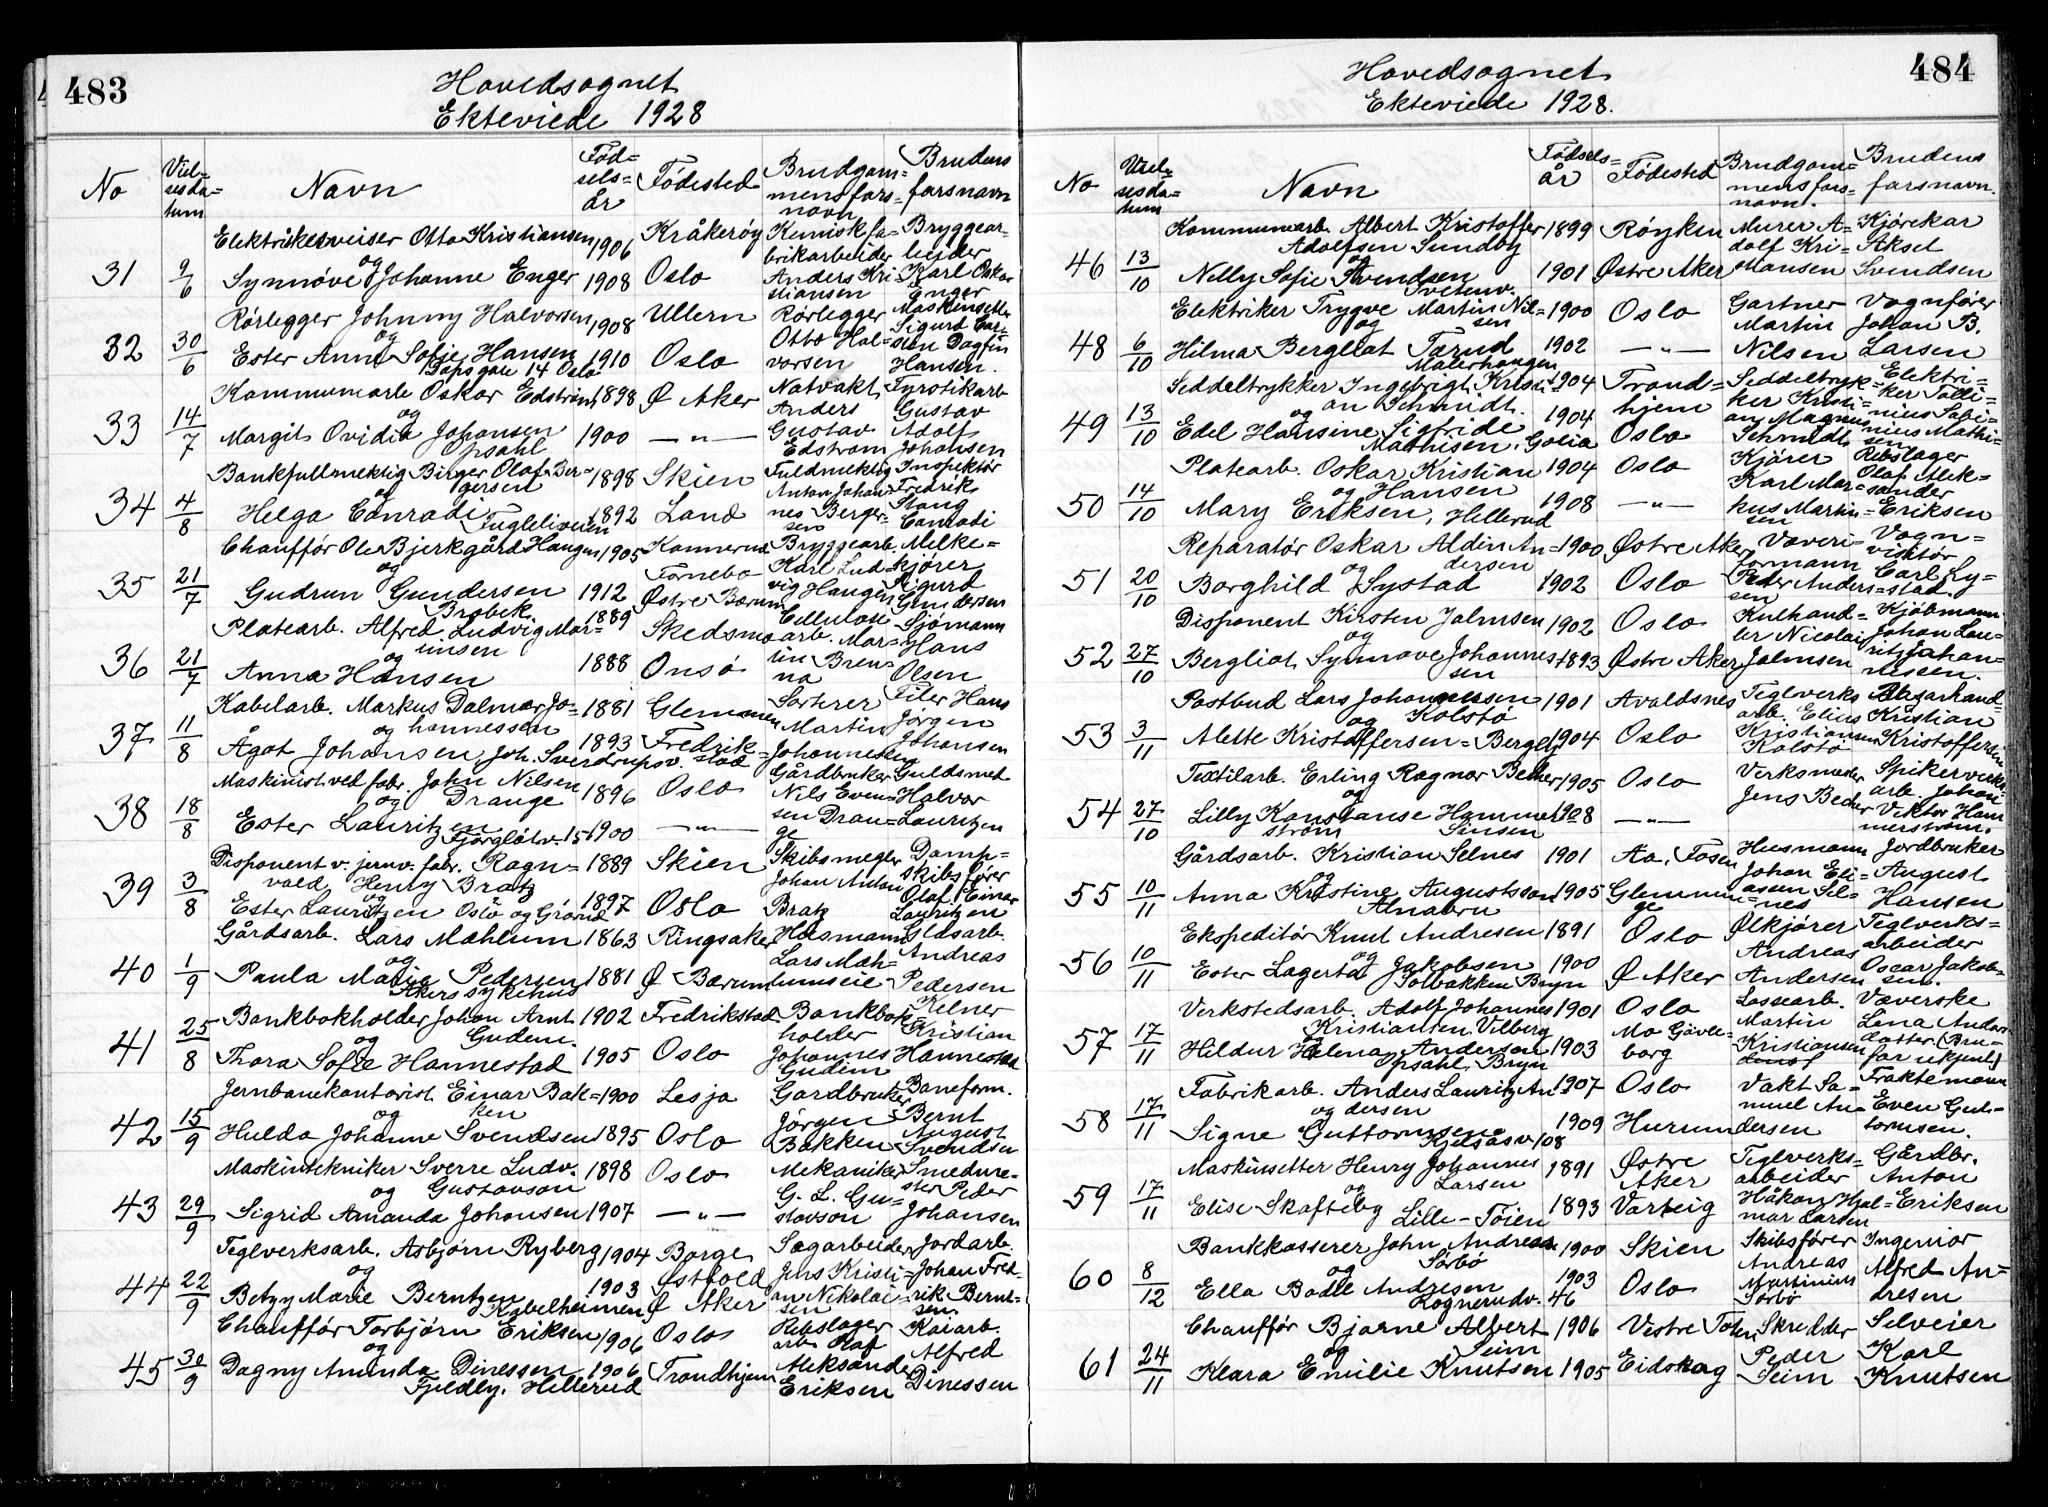 483
Hovedsognet
Ekteviede 1928
No Vielsesdatum Navn Fødselsår Fødested Brudgommens farsnavn Brudens farsnavn
Elektriksveiser Otto Kristiansen 1906 Kråkerøy Kemisk fabrikarbeider Anders Kristiansen
og
31 9/6 Synnøve Johanne Enger 1908 Oslo Bryggearbeider Karl Oskar Enger
Rörlegger Johnny Halvorsen 1908 Ullern Rörlegger Otto Halvorsen
og
32 30/6 Ester Anna Sofie Hansen 1910 Oslo Maskinsetter Sigurd Carsten Dagfin Hansen.
gate 14 Oslo
Kommunearb Oskar Edström 1898 Ø Aker Natvakt Anders Gustav Edstrom
og
33 14/7 Margit Ovidia Johansen 1900 —"— Gustav Adolf Johansen
Opsahl
Bankfullmektig Birger Olaf Bergersen 1898 Skien Fuldmektig Anton Johannes Bergersen
og
34 4/8 Helga Conradi 1892 Land Inspektör Fredrik Stang Conradi
Fugleliveien
Chauffør Ole Bjerkgård Haugen 1905 Bryggearb. Karl Ludvig Haugen
og
35 21/7 Gudrun Gundersen 1912 Fornebo Østre Bærum Melkekjører Sigurd Gundersen
Brobek.
Platearb. Alfred Ludvig Martinsen 1889 Skedsmo Cellulosearb. Martin Brenna
og
36 21/7 Anna Hansen 1888 Onsö Sjömann Hans Olsen
Kabelarb. Markus Dalmar Johannessen 1881 Glemmen Sorterer Martin Johannesen
og
37 11/8 Ågot Johansen 1893 Fredrikstad Filer Hans Jörgen Johansen
Joh. Sverdrupsv.
Maskinist ved fabr. John Nilsen Drange 1896 Oslo Gårdbruker Nils Evensen Drange
og
38 18/8 Ester Lauritzen 1900 —"— Guldsmed Halvor Lauritzen
Disponent v. jernv. fabr. Ragnvald Henry Bratz 1889 Skien Skibsmegler Johan Anton Bratz
og
39 3/8 Ester Lauritzen 1897 Oslo Dampskibsfører Olaf Einar Lauritzen
Oslo og Grorud
Gårdsarb. Lars Mæhlum 1863 Ringsaker Husmann Lars Mæhlumseie
og
40 1/9 Paula Marie Pedersen 1881 Ø Bærum Glasarb. Andreas Pedersen
Akers sykehus
Bankbokholder Johan Arnt Gudem 1902 Fredrikstad Bankbokholder Johannes Gudem
og
41 25/8 Thora Sofie Hannestad 1905 Oslo Kelner Kristian Hannestad
Jernbanekontorist Einar Bakken 1900 Lesja Gardbruker Jørgen Bakken
og
42 15/9 Hulda Johanne Svendsen 1895 Oslo Baneform. Bernt August Svendsen
Maskintekniker Sverre Ludv. Gustavson 1898 Oslo Mekaniker G. L. Gustavson
og
43 29/9 Sigrid Amanda Johansen 1907 —"— Smedmester Peder Johansen
Teglverksarb. Asbjørn Ryberg 1904 Borge Østfold Sagarbeider Jens Kristian Nikolaisen
og
44 22/9 Betzy Marie Berntzen 1903 Ø Aker Jordarb. Johan Fredrik Berntsen.
Kabelheimen
Chauffør Torbjörn Eriksen 1906 Oslo Rebslager arb Olaf Aleksander Eriksen
og
45 30/9 Dagny Amanda Dinessen 1906 Trondhjem Kaiarb. Alfred Dinessen
Fjeldly. Hellerud
484
Hovedsognet
Ekteviede 1928.
No Vielsesdatum Navn Fødselsår Fødested Brudgommens farsnavn. Brudens farsnavn.
Kommunearb. Albert Kristoffer Adolfsen Sundby 1899 Røyken Murer Adolf Kristiansen
og
46 13/10 Nelly Sofie Svendsen 1901 Østre Aker Kjörekar Aksel Svendsen
Tvetenv.
Elektriker Trygve Martin Nilsen 1900 Oslo Gartner Martin Nilsen
og
48 6/10 Hilma Bergliot Torud 1902 —"— Vognfører Johan B. Larsen
Malerhaugen
Seddeltrykker Ingebrigt Kristian Schmidt. 1904 Trondhjem Seddeltrykker Kristian Magnus Schmidt
og
49 13/10 Edel Hansine Sigfride Mathisen, Golia 1904 Oslo Elektriker Tollinius Sabinius Mathisen
Platearb. Oskar Kristian Hansen 1904 Oslo Kjörer Karl Markus Martinsen
og
50 14/10 Mary Eriksen, Hellerud 1908 —"— Rebslager Olaf Aleksander Eriksen
Reparatør Oskar Aldin Andersen 1900 Østre Aker Væveriformann Peder Andersen
og
51 20/10 Borghild Lystad 1902 Oslo Vognvisitör Carl Lystad.
Disponent Kirsten Jalmsen 1902 Oslo Kulhandler Nicolai Jalmsen
og
52 27/10 Bergliot Synnøve Johannessen 1893 Østre Aker Kjöbmann Johan Lauritz Johannessen.
Postbud Lars Johannessen Kolstø 1901 Avaldsnes Teglverksarb. Elias Kristiansen Kolstø
og
53 3/11 Alette Kristoffersen = Bergely 1904 Oslo Kristian Kristoffersen
Textilarb. Erling Ragnar Becker 1905 Oslo Verksmester Jens Becker
og
54 27/10 Lilly Konstanse Hammerström 1908 —"— Spikerverksarb. Johan Viktor Hammerstrøm.
Sinsen
Gårdsarb. Kristian Selnes 1901 Aa, Fosen Husmann Johan Eliassen Selnes
og
55 10/11 Anna Kristine Augustsson 1905 Glemminge Jordbruker August Hansen
Alnabru
Ekspeditör Knut Andresen 1891 Oslo Ølkjører Andreas Andersen
og
56 10/11 Ester Lagerta Jakobsen 1900 Ø Aker Teglverksarbeider Oscar Jakobsen.
Solbakken Bryn
Verkstedsarb. Adolf Johannes Kristiansen Vilberg 1901 Oslo Lossearb. Martin Kristiansen
og
57 17/11 Hildur Helena Andersen 1903 Mo Gävleborg Væverske Lena Andersdatter (Brudens far ukjent)
Opsahl, Bryn
Fabrikarb. Anders Lauritz Andersen 1907 Oslo Vakt Samuel Andersen
og
58 17/11 Signe Guttormsen 1909 Hurum Fraktemann Even Guttormsen.
Kjelsåsv 108
Maskinsetter Henry Johannes Larsen 1891 Østre Aker Teglverksarbeider Håkon Hjalmar Larsen
og
59 17/11 Elise Skafteby 1893 Varteig Gårdbr. Anton Eriksen
Lille-Töien
Bankkasserer John Andreas Sørbö 1900 Skien Skibsfører Andreas Martinius Sörbö
og
60 8/12 Ella Bodil Andresen 1903 Oslo Ingeniør Alfred Andresen
Rognerudv. 46
Chauffør Bjarne Albert Seim 1906 Vestre Toten Skredder Peder Seim
og
61 24/11 Klara Emilie Knutsen 1905 Eidskog Selveier Karl Knutsen